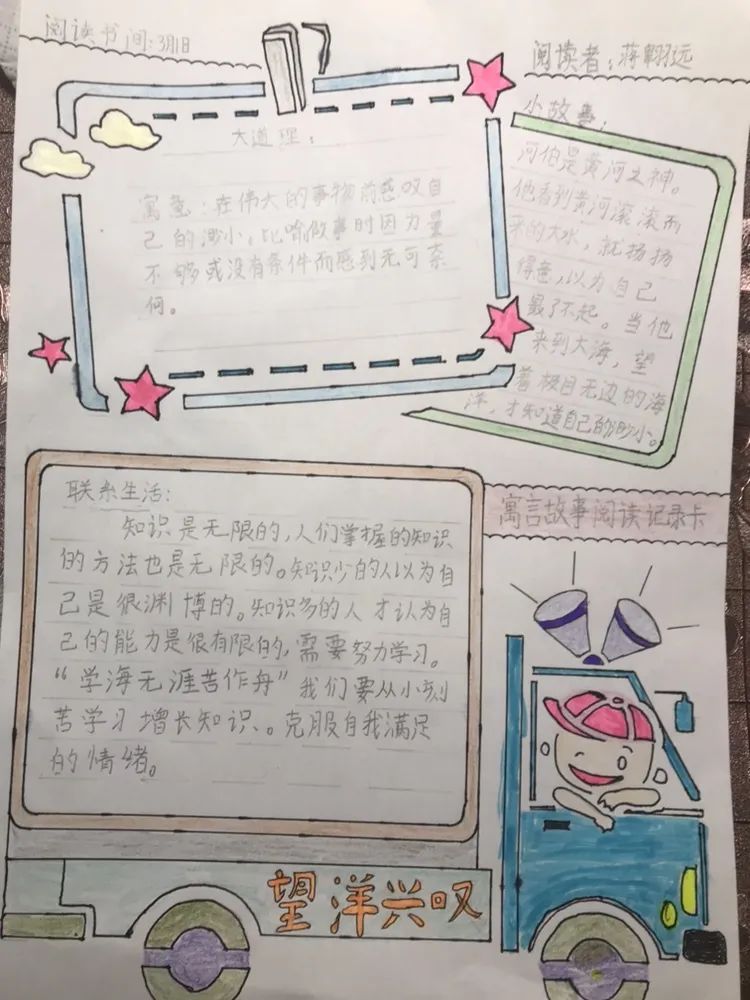 阅读书间:3月1日
阅读者:蒋翾远
大道理:
寓意:在伟大的事物前感叹自
己的渺小,比喻做事时因力量
不够或没有条件而感到无可奈
何。
小故事:
河伯是黄河之神。
他看到黄河滚滚而
来的大水,就扬扬
得意,以为自己
最了不起。当他
来到大海,望
着极目无边的海
洋,才知道自己的渺小。
联系生活:
知识是无限的,人们掌握的知识
的方法也是无限的。知识少的人以为自
己是很渊博的。知识多的人才认为自
己的能力是很有限的,需要努力学习。
“学海无涯苦作舟”我们要从小刻
苦学习增长知识、。克服自我满足
的情绪。
寓言故事阅读记录卡
望洋兴叹